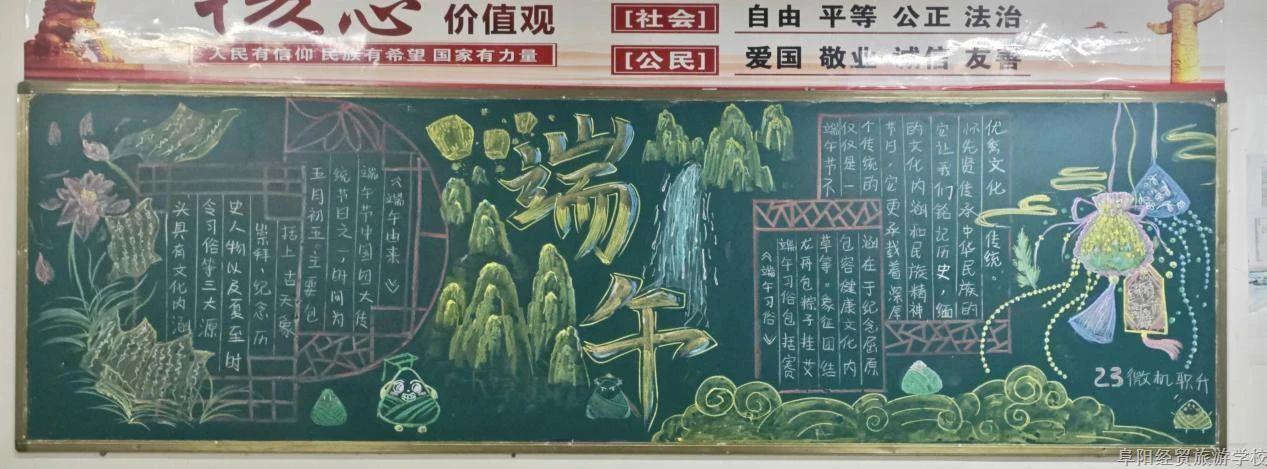 核心价值观
人民有信仰 民族有希望 国家有力量
[社会] 自由 平等 公正 法治
[公民] 爱国 敬业 诚信 友善
端午
《端午由来》
端午节中国四大传
统节日之一,时间为
五月初五,主要包
括上古天象
崇拜、纪念历
史人物以及夏至时
令习俗等三大源
头具有文化内涵
优秀文化传统。
怀先贤传承中华民族的
它让我们铭记历史,缅
的文化内涵和民族精神
节日,它更承载着深厚
个传统的
仅仅是一
端午节不
涵在于纪念屈原
包容健康文化内
草等。象征团结
龙舟包粽子挂艾
端午习俗包括赛
《端午习俗》
23微机职升
阜阳经贸旅游学校